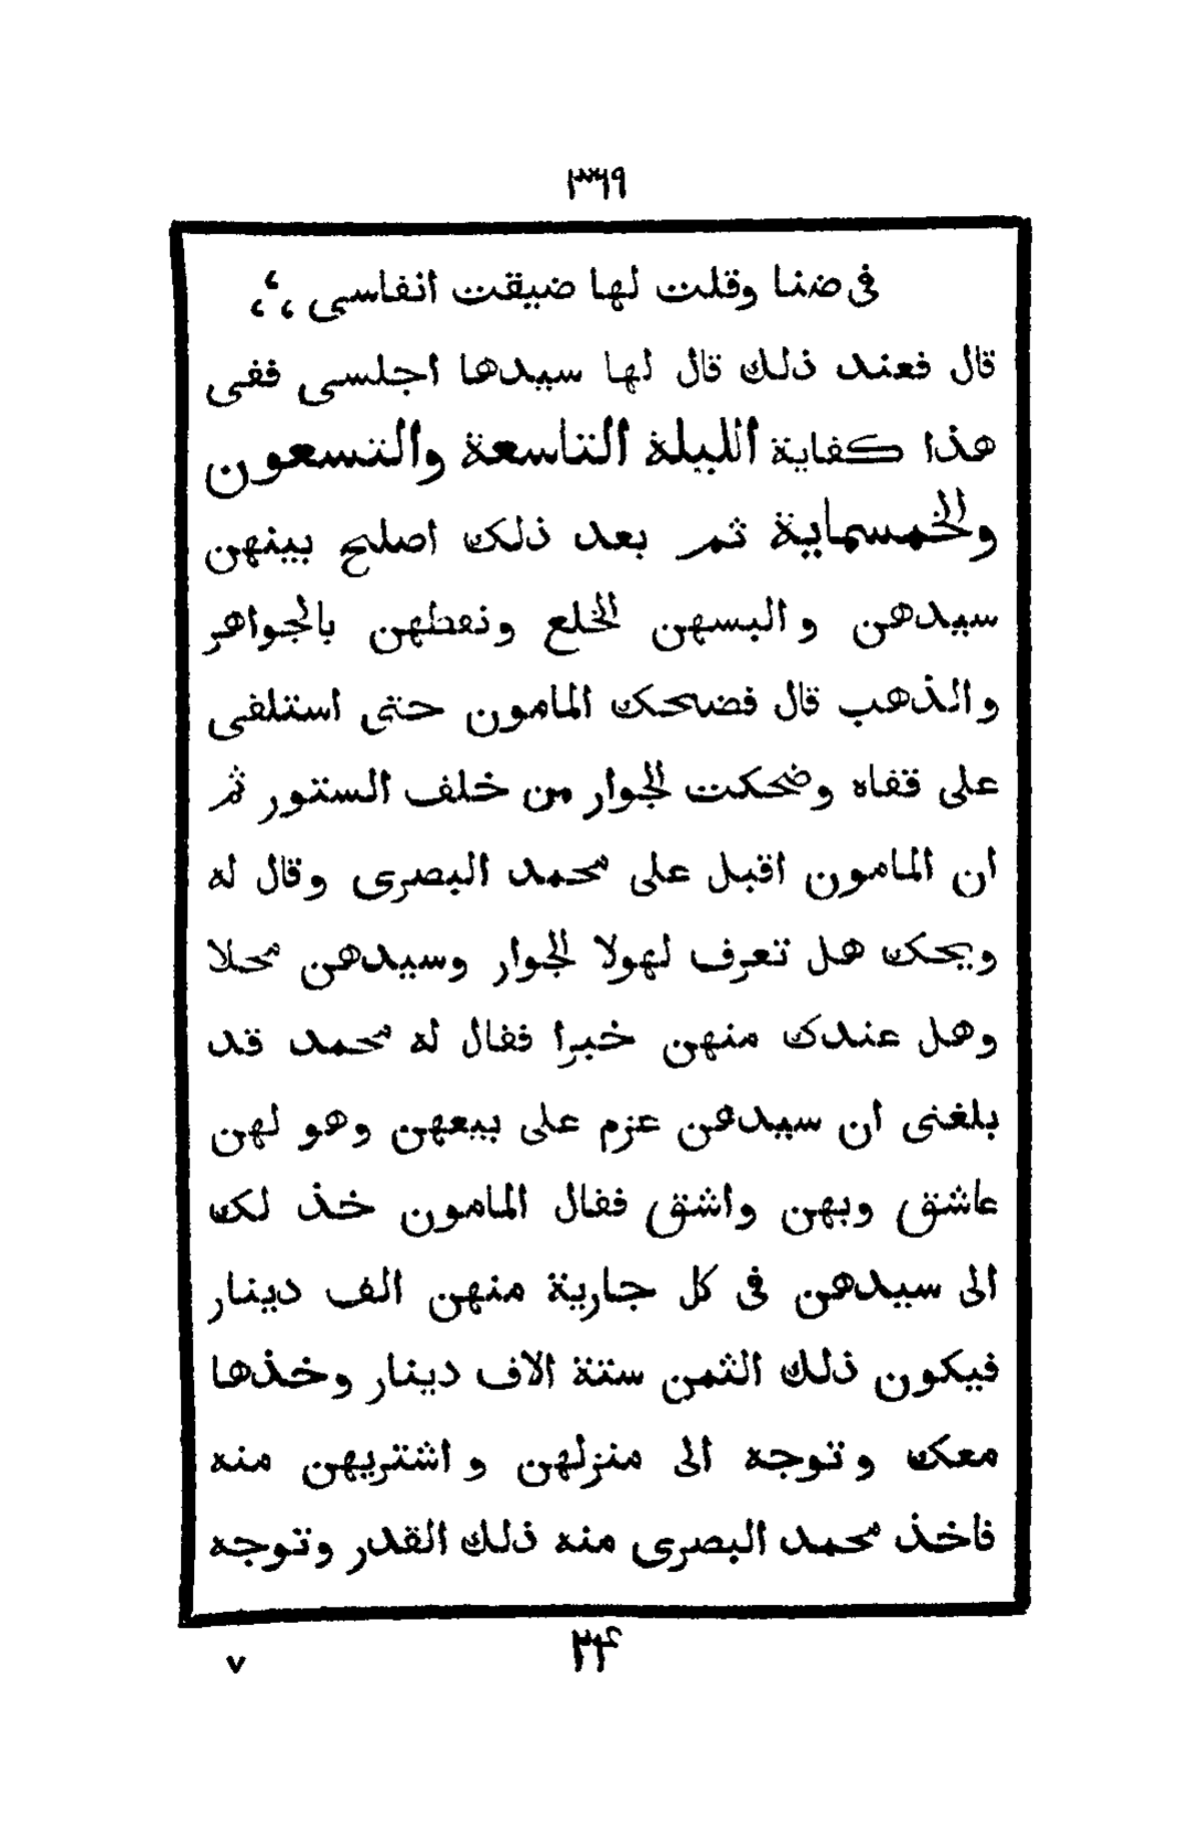 ٣٦٩
فى ضنا وقلت لها ضيقت انفاسى
قال فعند ذلك قال لها سيدها اجلسى ففى
هذا كفاية الليلة التاسعة والتسعون
والخمسماية ثم بعد ذلك اصلح بينهن
سيدهن والبسهن الخلع ونقطهن بالجواهر
والذهب قال فضحك المامون حتى استلقى
على قفاه وضحكت الجوار من خلف الستور ثم
ان المامون اقبل على محمد البصرى وقال له
ويحك هل تعرف لهولا الجوار وسيدهن محلا
وهل عندك منهن خبرا فقال له محمد قد
بلغنى ان سيدهن عزم على بيعهن وهو لهن
عاشق وبهن واشق فقال المامون خذ لك
الى سيدهن فى كل جارية منهن الف دينار
فيكون ذلك الثمن ستة الاف دينار وخذها
معك وتوجه الى منزلهن واشتريهن منه
فاخذ محمد البصرى منه ذلك القدر وتوجه
٧ ٢٤